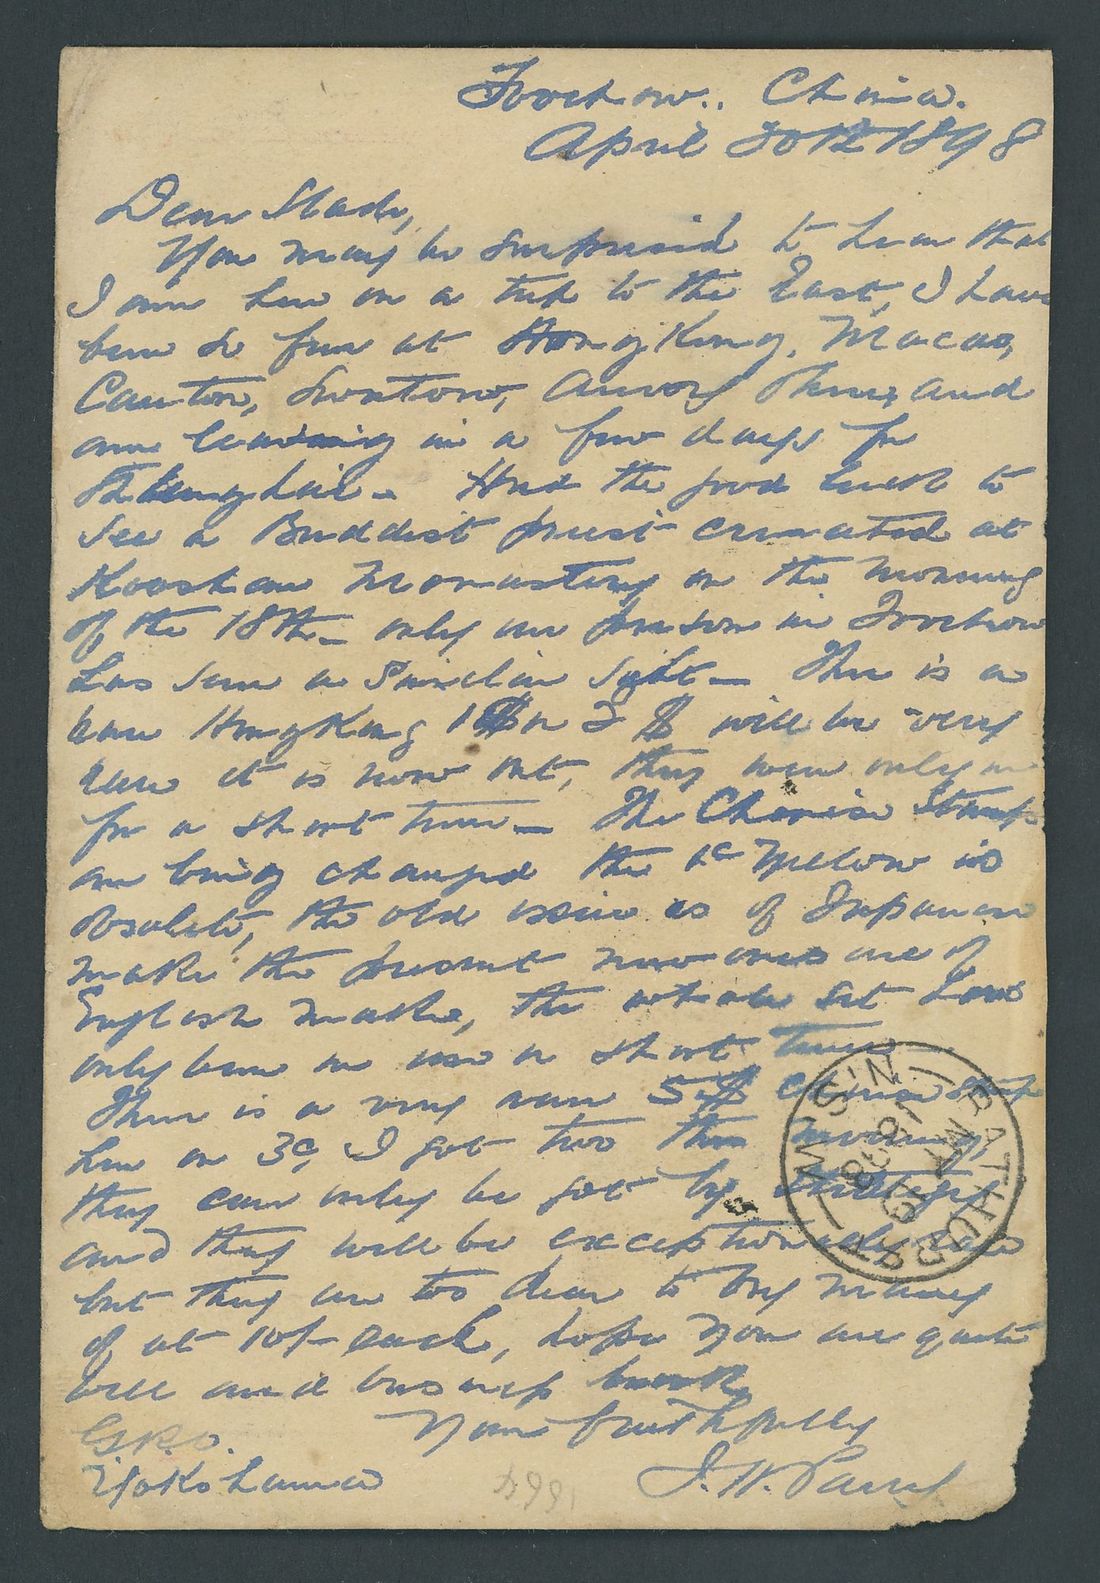 Foochow, China.
April 20th 1898
Dear Slade,
You may be surprised to hear that
I am here on a trip to the East, I have
been so far at HongKong, Macao,
Canton, Swatow, Amoy there, and
am leaving in a few days for
Shanghai - Had the good luck to
see a Buddist priest cremated at
Kooshan Monastery on the morning
of the 18th - only one person in Foochow
has seen a similar sight - There is a
rare HongKong 1$ on 2 $ will be very
rare it is now out, they were only in
for a short time - The Chinese Stamps
are being changed the 1c Yellow is
obsolete, the old issue is of Japanese
make the present new ones are of
English make, the whole set have
only been in use a short time -
There is a very rare 5$ Chinese stamp
here on 3c, I got two this morning,
they can only be got by strategy
and they will be exceptionally rare
but they are too dear to buy many
of at 10/- each, hope you are quite
well and business brisk
Yours faithfully
J.W. Parry
G.P.O.
Yokohama
BATHURST
MY 19
98
N.S.W